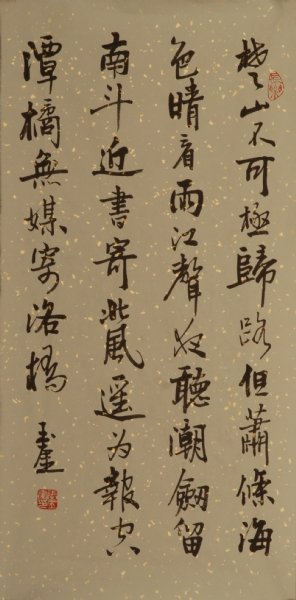 楚山不可極歸路但蕭條海
色晴看雨江聲夜聽潮劒留
南斗近書寄北風遥為報空
潭橘無媒寄洛橋